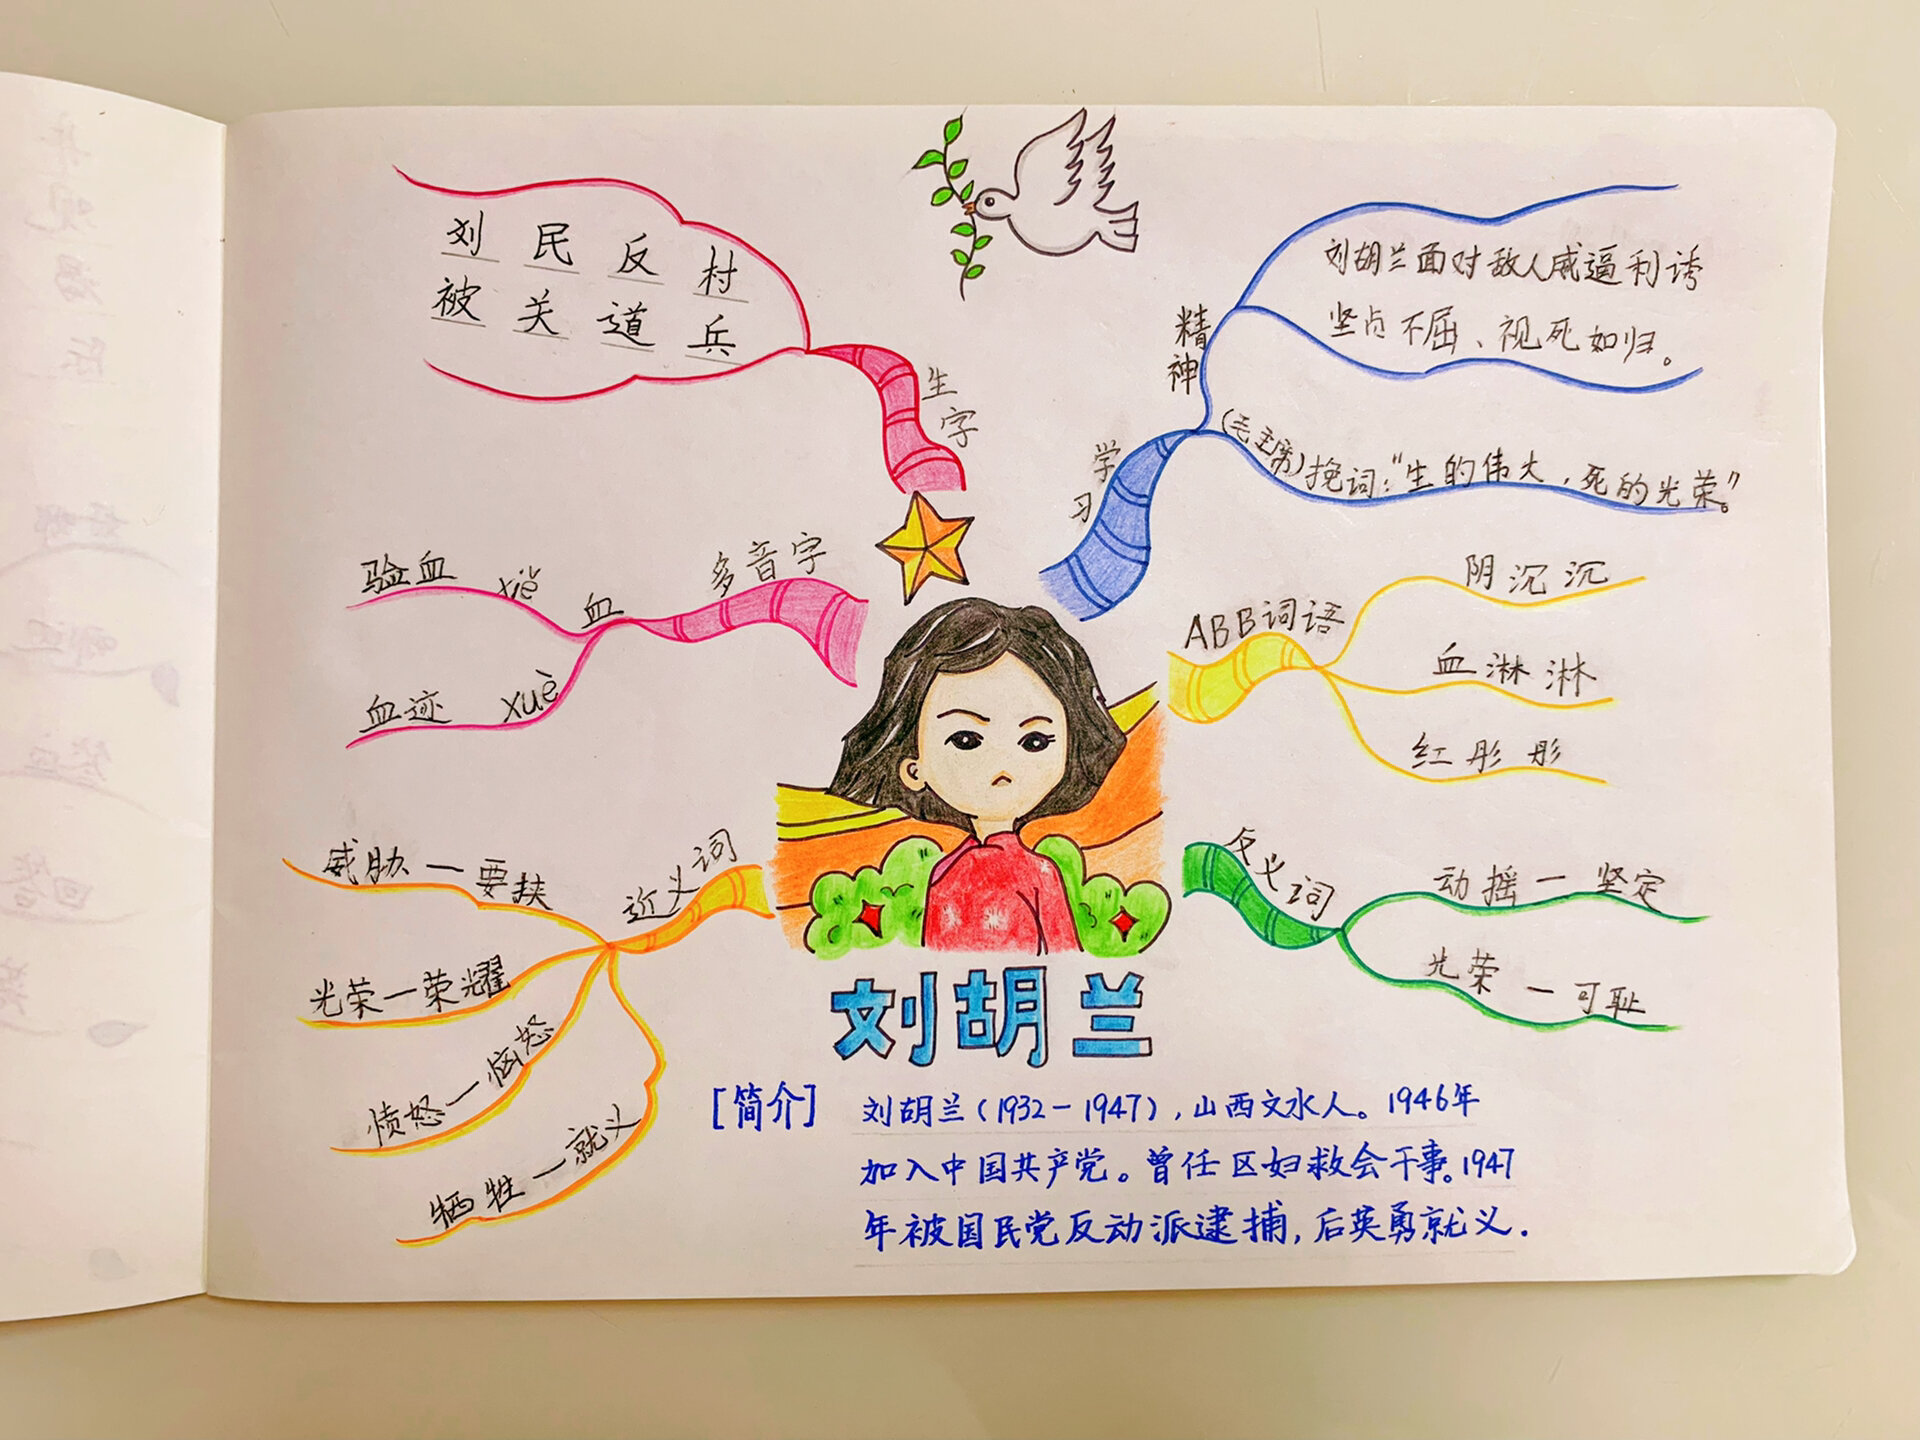 刘 民 反 村
被 关 道 兵
生字
验血 xiě 血 多音字
血迹 xuè
近义词
威胁一要挟
光荣一荣耀
愤怒一恼怒
牺牲一就义
学习
精神
刘胡兰面对敌人威逼利诱
坚贞不屈、视死如归。
(毛主席)挽词:“生的伟大,死的光荣”。
ABB词语
阴沉沉
血淋淋
红彤彤
反义词
动摇一坚定
光荣一可耻
刘胡兰
[简介] 刘胡兰(1932-1947),山西文水人。1946年
加入中国共产党。曾任区妇救会干事。1947
年被国民党反动派逮捕,后英勇就义.